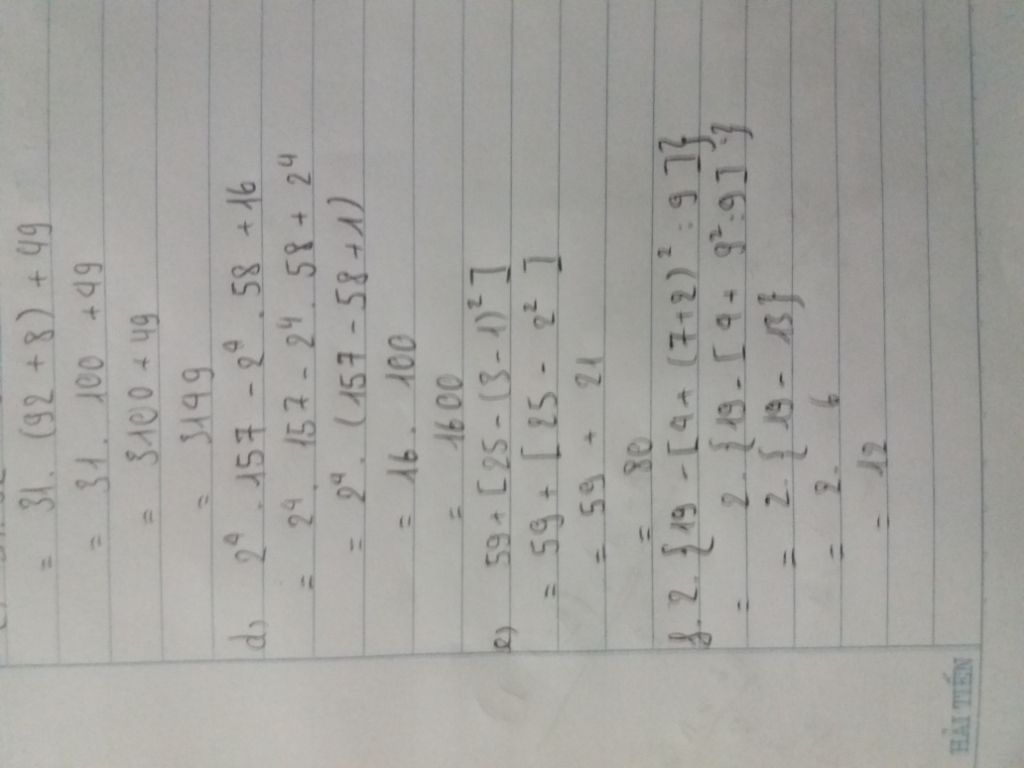 = 31. (92 + 8) + 49
= 31. 100 + 49
= 3100 + 49
= 3149
d, 2⁴. 157 - 2⁴. 58 + 16
= 2⁴. 157 - 2⁴. 58 + 2⁴
= 2⁴. (157 - 58 + 1)
= 16. 100
= 1600
e, 59 + [25 - (3 - 1)²]
= 59 + [25 - 2²]
= 59 + 21
= 80
f. 2. {19 - [4 + (7 + 2)² : 9]}
= 2. {19 - [4 + 9² : 9]}
= 2. {19 - 13}
= 2. 6
= 12
HẢI TIẾN